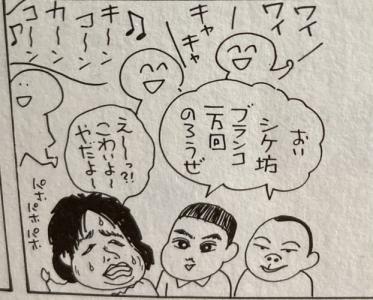 ワイ
ワイ
キャ
キャ
キ〜ン
コ〜ン
カ〜ン
コ〜ン
おい
シケ坊
ブランコ
一万回
のろうぜ
え〜っ?!
こわいよ〜
やだよ〜
パポ
パポパポ